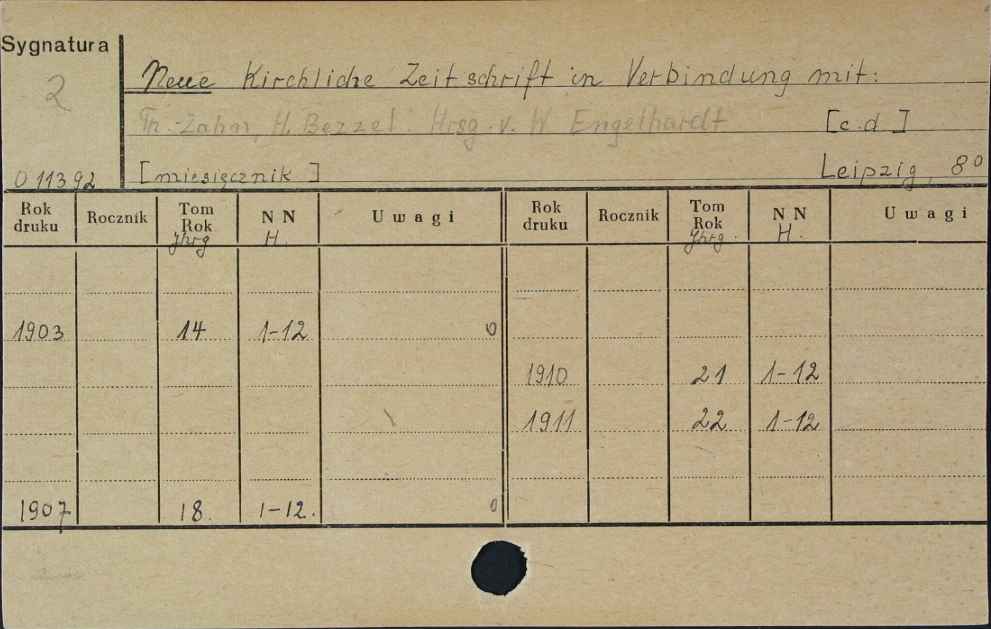 Sygnatura
2
Neue Kirchliche Zeitschrift in Verbindung mit:
Th. Zahn, H. Bezzel. Hrsg. v. W Engelhardt [c.d.]
011392 [miesięcznik] Leipzig, 8°
Rok druku Rocznik Tom Rok Jhrg NN H Uwagi Rok druku Rocznik Tom Rok Jhrg. NN H. Uwagi
1903 14 1-12 0
1910 21 1-12
1911 22 1-12
1907 18. 1-12. 0